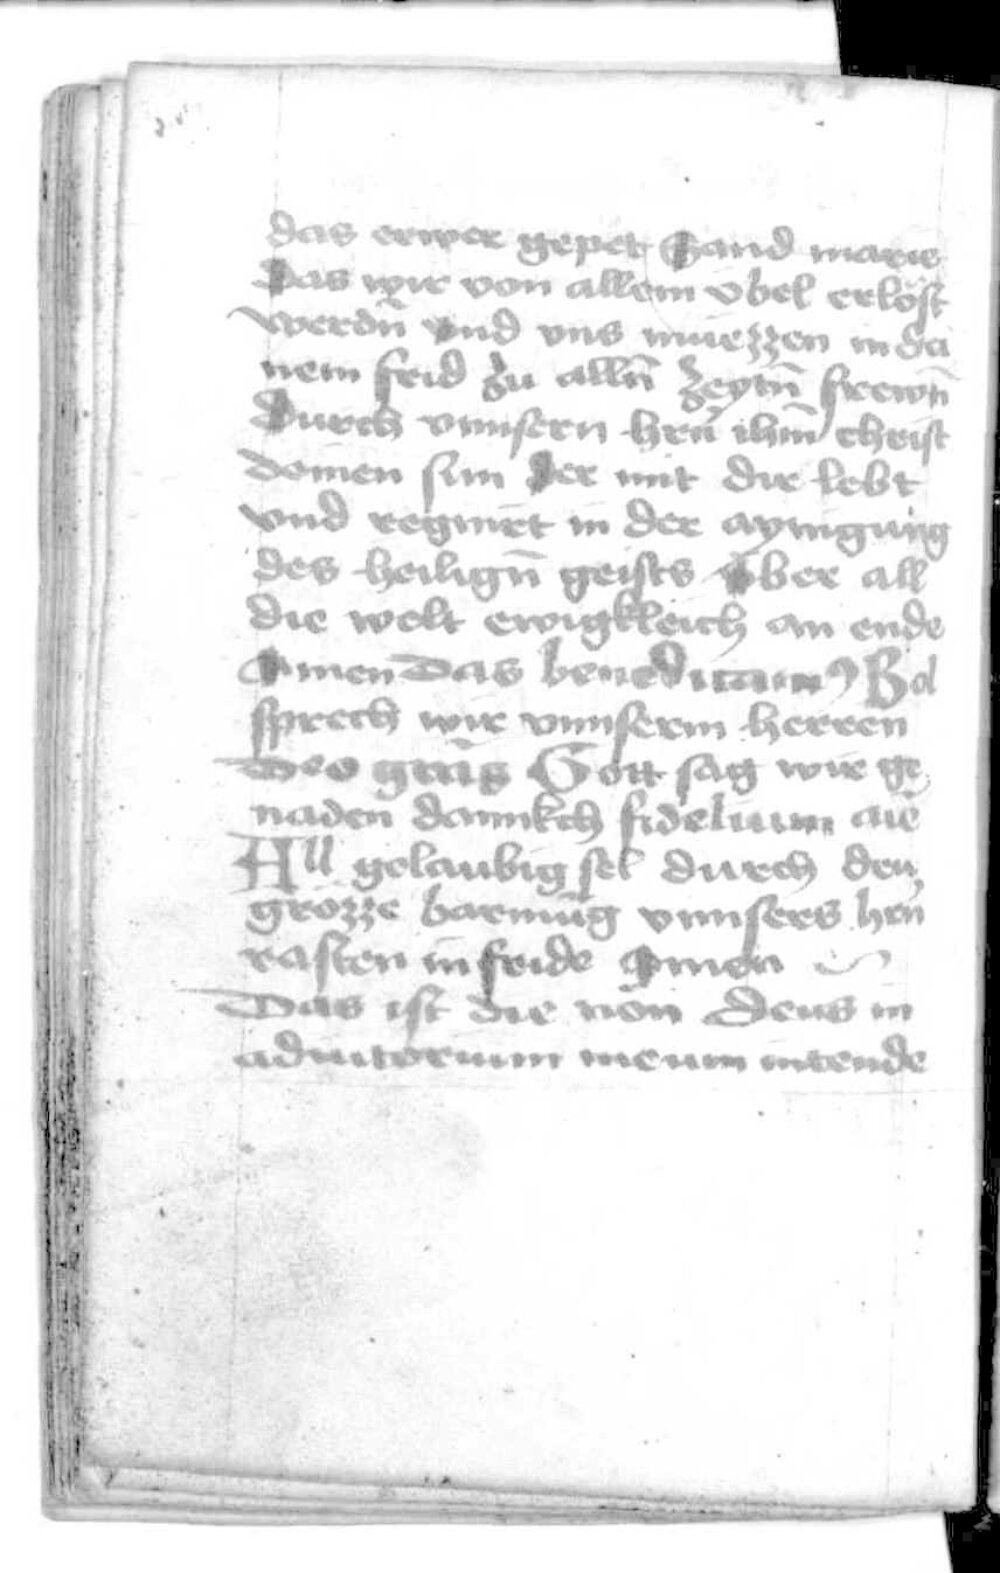 das erwer gepet Sand marie
Das wir von allem vbel erlöst
werdn̄ vnd vns muezzen in dei
nem frid zu alln̄ zeytn̄ frewn̄
Durch vnnsern hrn̄ ihm̄ christ
deinen sun der mit dir lebt
vnd regnirt in der aynigung
des heilign̄ geists vber all
die welt ewigkleich an ende
Amen Das benedicamus Bol
sprech wir vnnserm herren
Deo grās Gott sag wir ge
naden dannkch fidelium aīe
All gelaubig sel durch den
grözze barmūg vnnsers hrn̄
rasten in fride Amen
Das ist die non Deus in
adiutorium meum intende